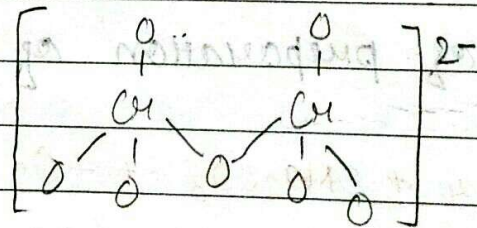 O O 2-
Cr Cr
O O O O O